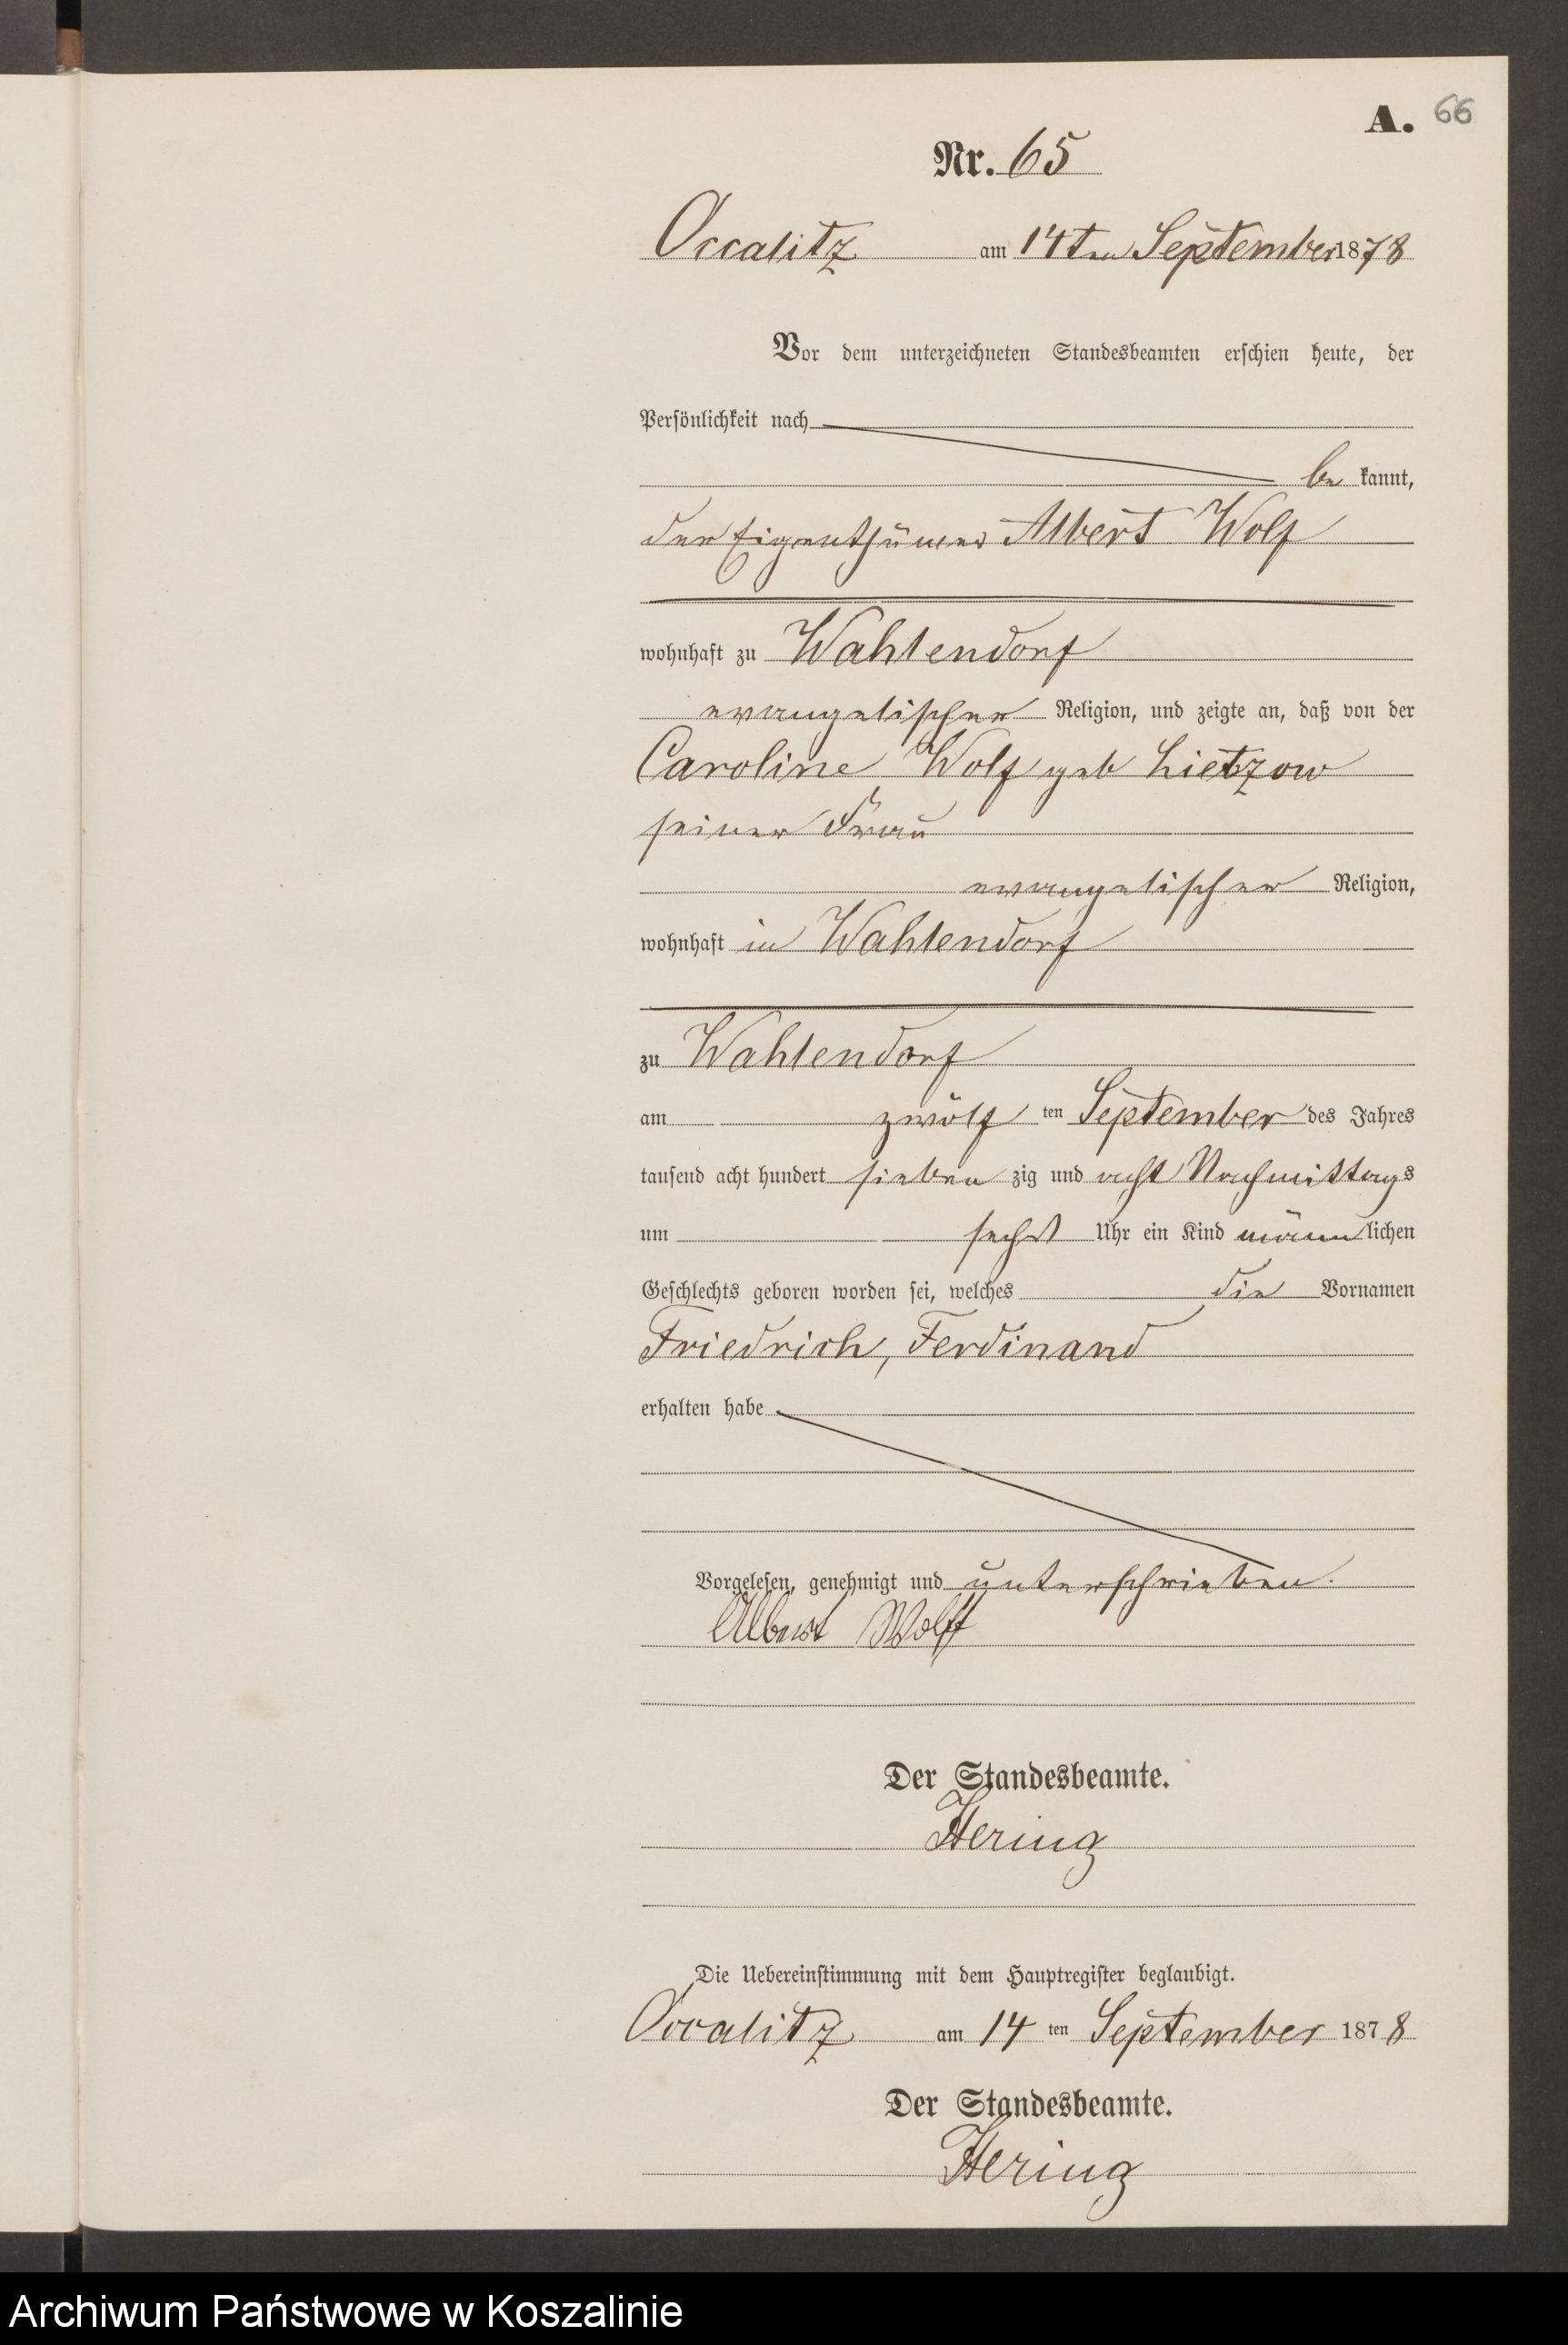 A. 66
Nr. 65
Occalitz am 14ten September 1878
Vor dem unterzeichneten Standesbeamten erschien heute, der
Persönlichkeit nach
be kannt,
der Eigenthümer Albert Wolf
wohnhaft zu Wahlendorf
evangelischer Religion, und zeigte an, daß von der
Caroline Wolf geb Lietzow
seiner Frau
evangelischer Religion,
wohnhaft in Wahlendorf
zu Wahlendorf
am zwölf ten September des Jahres
tausend acht hundert sieben zig und acht Nachmittags
um sechs Uhr ein Kind männ lichen
Geschlechts geboren worden sei, welches die Vornamen
Friedrich, Ferdinand
erhalten habe
Vorgelesen, genehmigt und unterschrieben.
Albert Wolff
Der Standesbeamte.
Hering
Die Uebereinstimmung mit dem Hauptregister beglaubigt.
Occalitz am 14 ten September 1878
Der Standesbeamte.
Hering
Archiwum Państwowe w Koszalinie